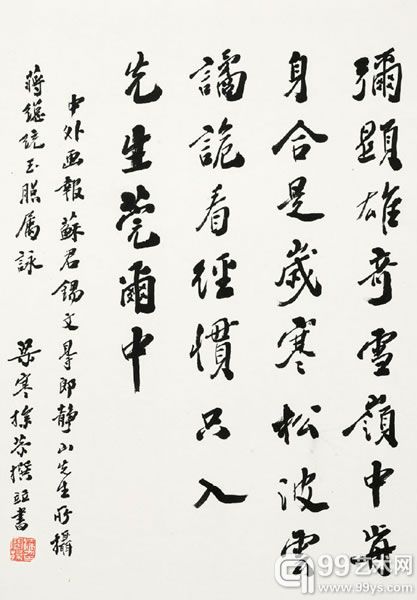 彌顯雄奇雪嶺中前
身合是歲寒松波雲
譎詭看經慣只入
先生莞爾中
中外画報蘇君錫文郎靜山先生所攝
蔣總統玉照属詠
梁寒操恭撰並書
99艺术网
www.99ys.com